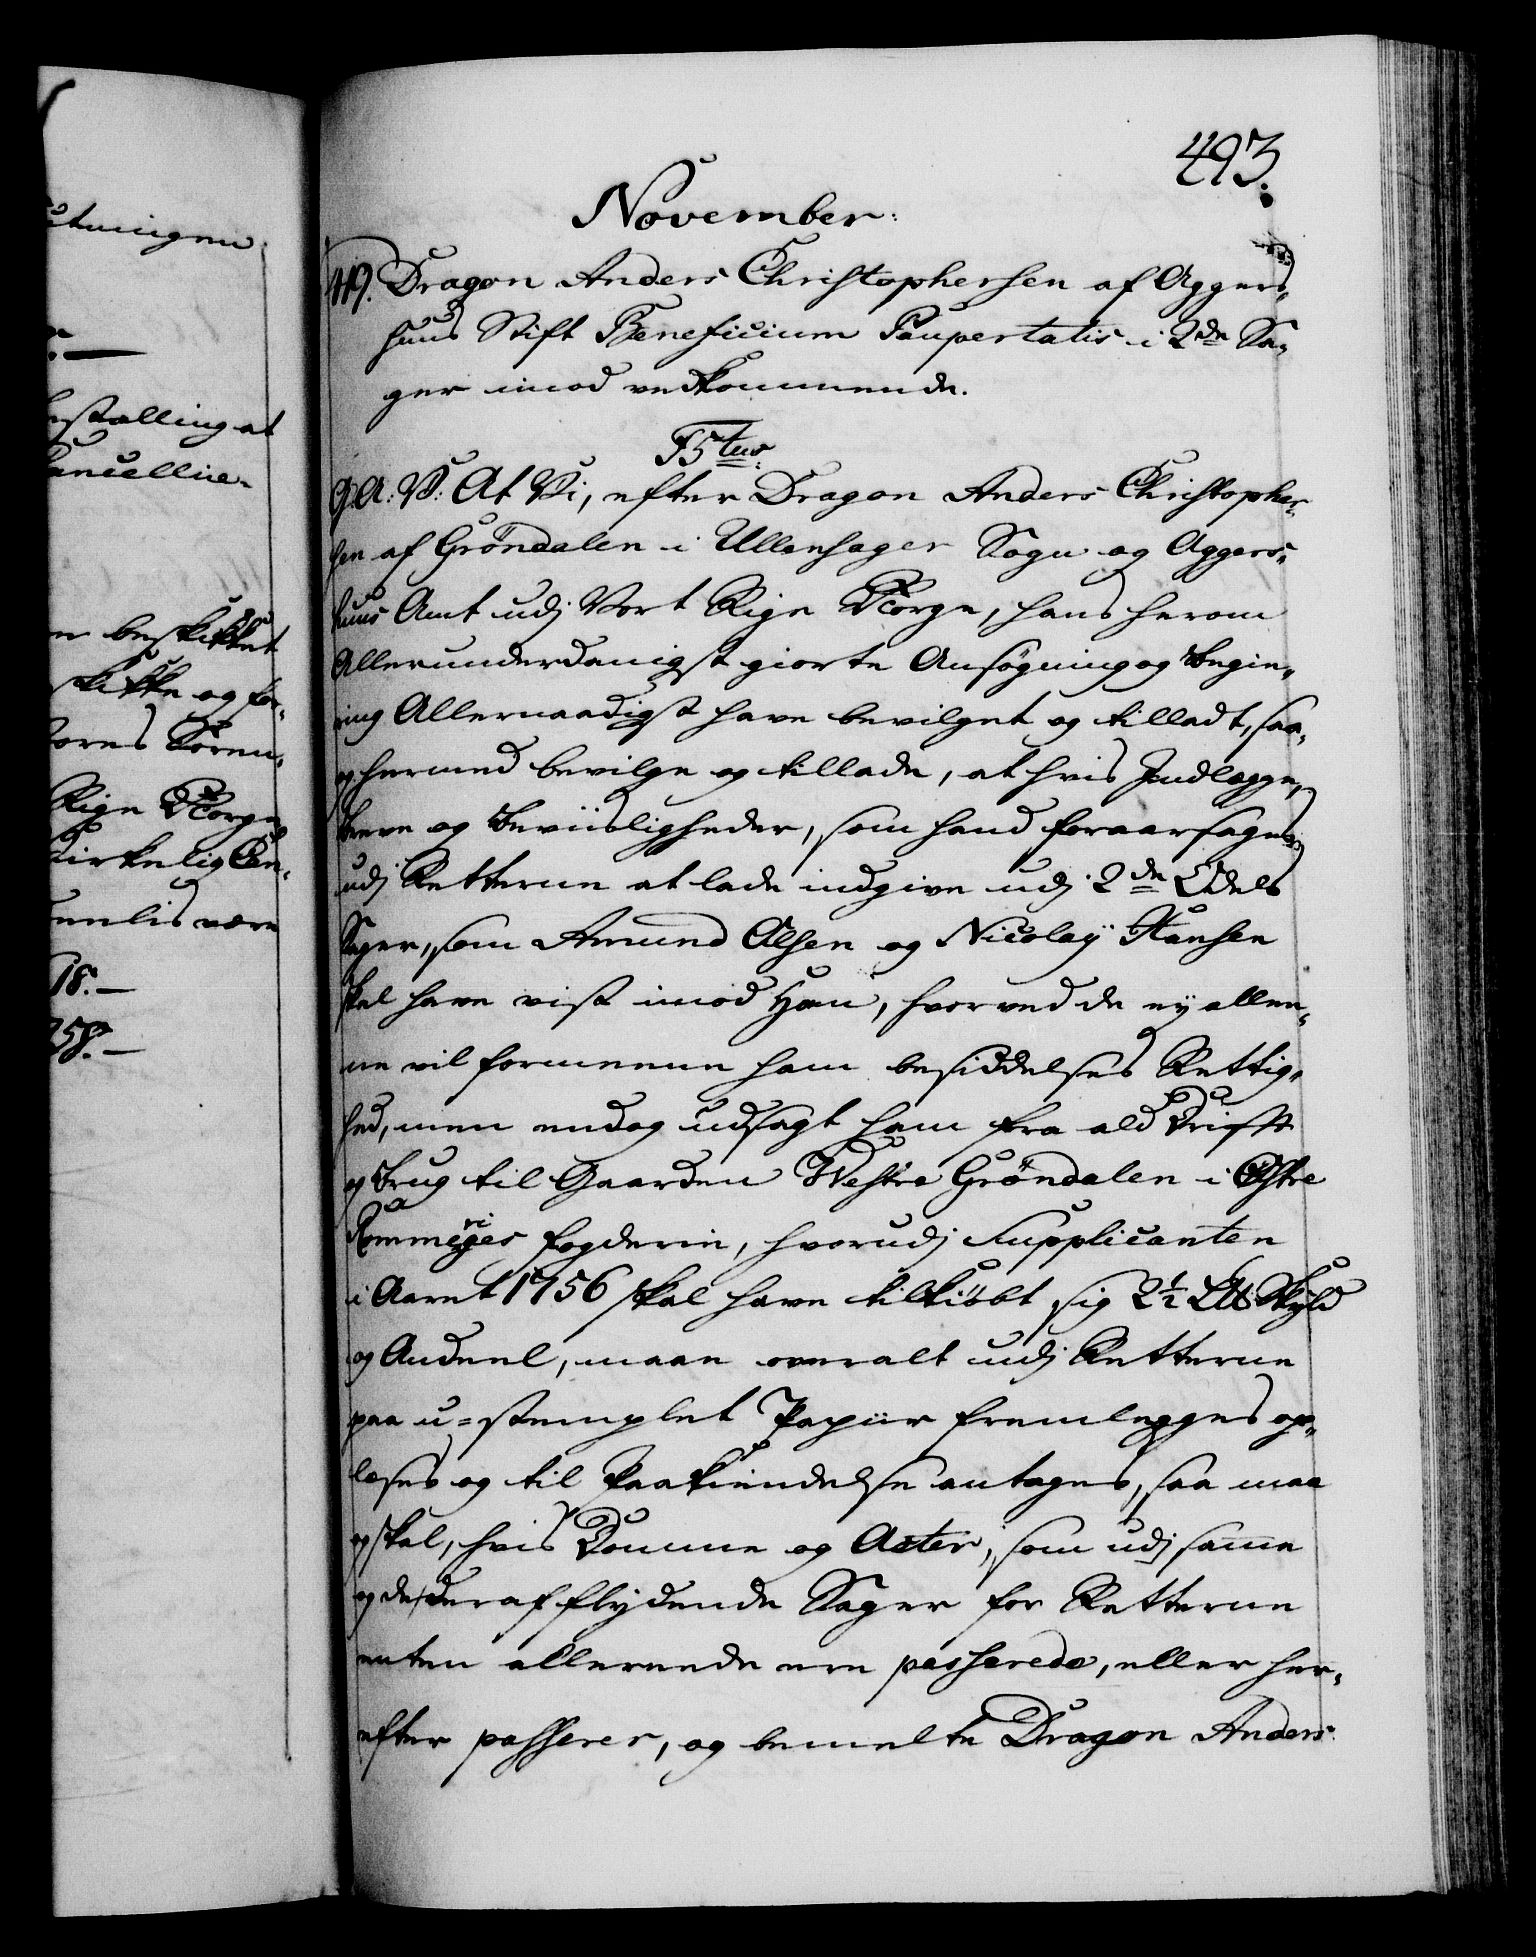 493.
November:
119. Dragon Anders Christophersen af Aggers,,
huus Stift Beneficium Paupertatis i 2de Sa,,
ger imod vedkommende.
F 5tus.
G. A: V: At Vi, efter Dragon Anders Christopher,,
sen af Gröndalen i Ullensager Sogn og Aggers,,
huus Amt udj Vort Rige Norge, hans herom
Allerunderdanigst giorte Ansøgning og Begie,,
ring Allernaadigst have bevilget og tilladt, saa,,
og hermed bevilge og tillade, at hvis Indlægge,,
Breve og Beviisligheder, som hand foraarsages
udj Retterne at lade indgive udj 2de Odels
Sager, som Amund Olsen og Nicolay Hansen
skal have rist imod Ham, hvorved de ey allee,,
ne vil formeene ham besiddelses Rettig,,
hed, men endog udsagt ham fra ald Drift
og Brug til Gaarden Westre Gröndalen i Østre
Rommeriges fogderie, hvorudj Supplicanten
i Aaret 1756 skal have tilkiöbt sig 2½ L℔ Skyld
og Andeel, maae overalt udj Retterne
paa u=stemplet Papiir fremlegges op,,
læses og til Paakiendelse antages, saa maa
og skal, hvis Domme og Acter, som udj samme
og de deraf flydende Sager for Retterne
enten allereede ere passerede, eller her,,
efter passerer, og bemelte Dragon Anders
skikke og for,,
Rige Norge
18.—